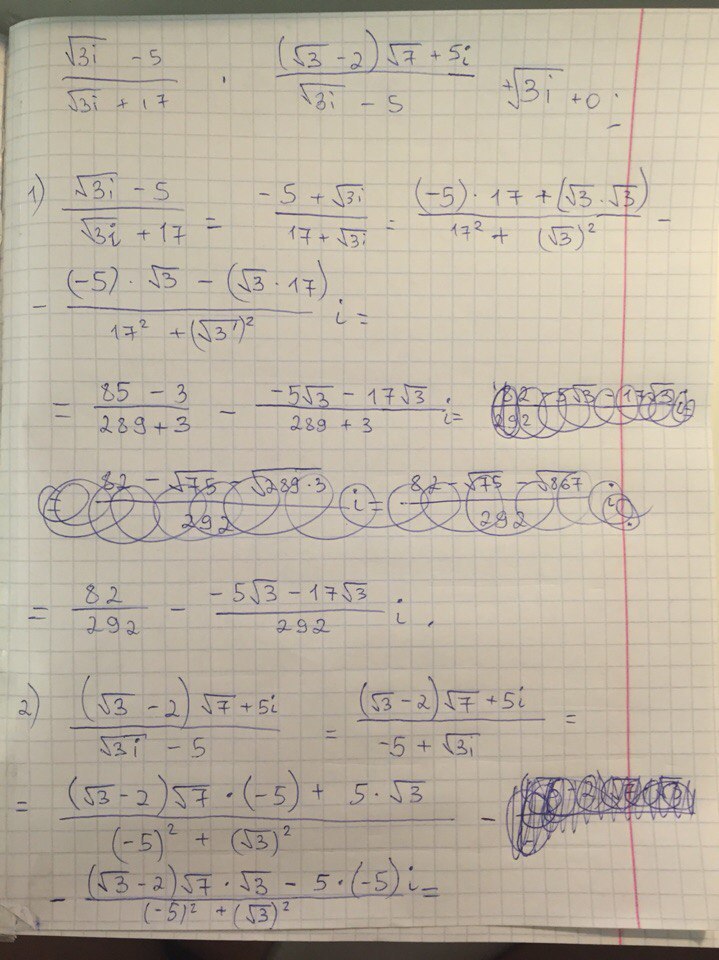 (√3i - 5)/(√3i + 17) · ((√3 - 2)√7 + 5i)/(√3i - 5) + √3i + 0i
1) (√3i - 5)/(√3i + 17) = (-5 + √3i)/(17 + √3i) = ((-5) · 17 + (√3 · √3))/(17² + (√3)²) -
- ((-5) · √3 - (√3 · 17))/(17² + (√3)²) i =
= (85 - 3)/(289 + 3) - (-5√3 - 17√3)/(289 + 3) i =
= (82 - √75 - √289·3)/292 i = (82 - √75 - √867)/292 i
= 82/292 - (-5√3 - 17√3)/292 i.
2) ((√3 - 2)√7 + 5i)/(√3i - 5) = ((√3 - 2)√7 + 5i)/(-5 + √3i) =
= ((√3 - 2)√7 · (-5) + 5 · √3)/((-5)² + (√3)²) -
- ((√3 - 2)√7 · √3 - 5 · (-5))/((-5)² + (√3)²) i =